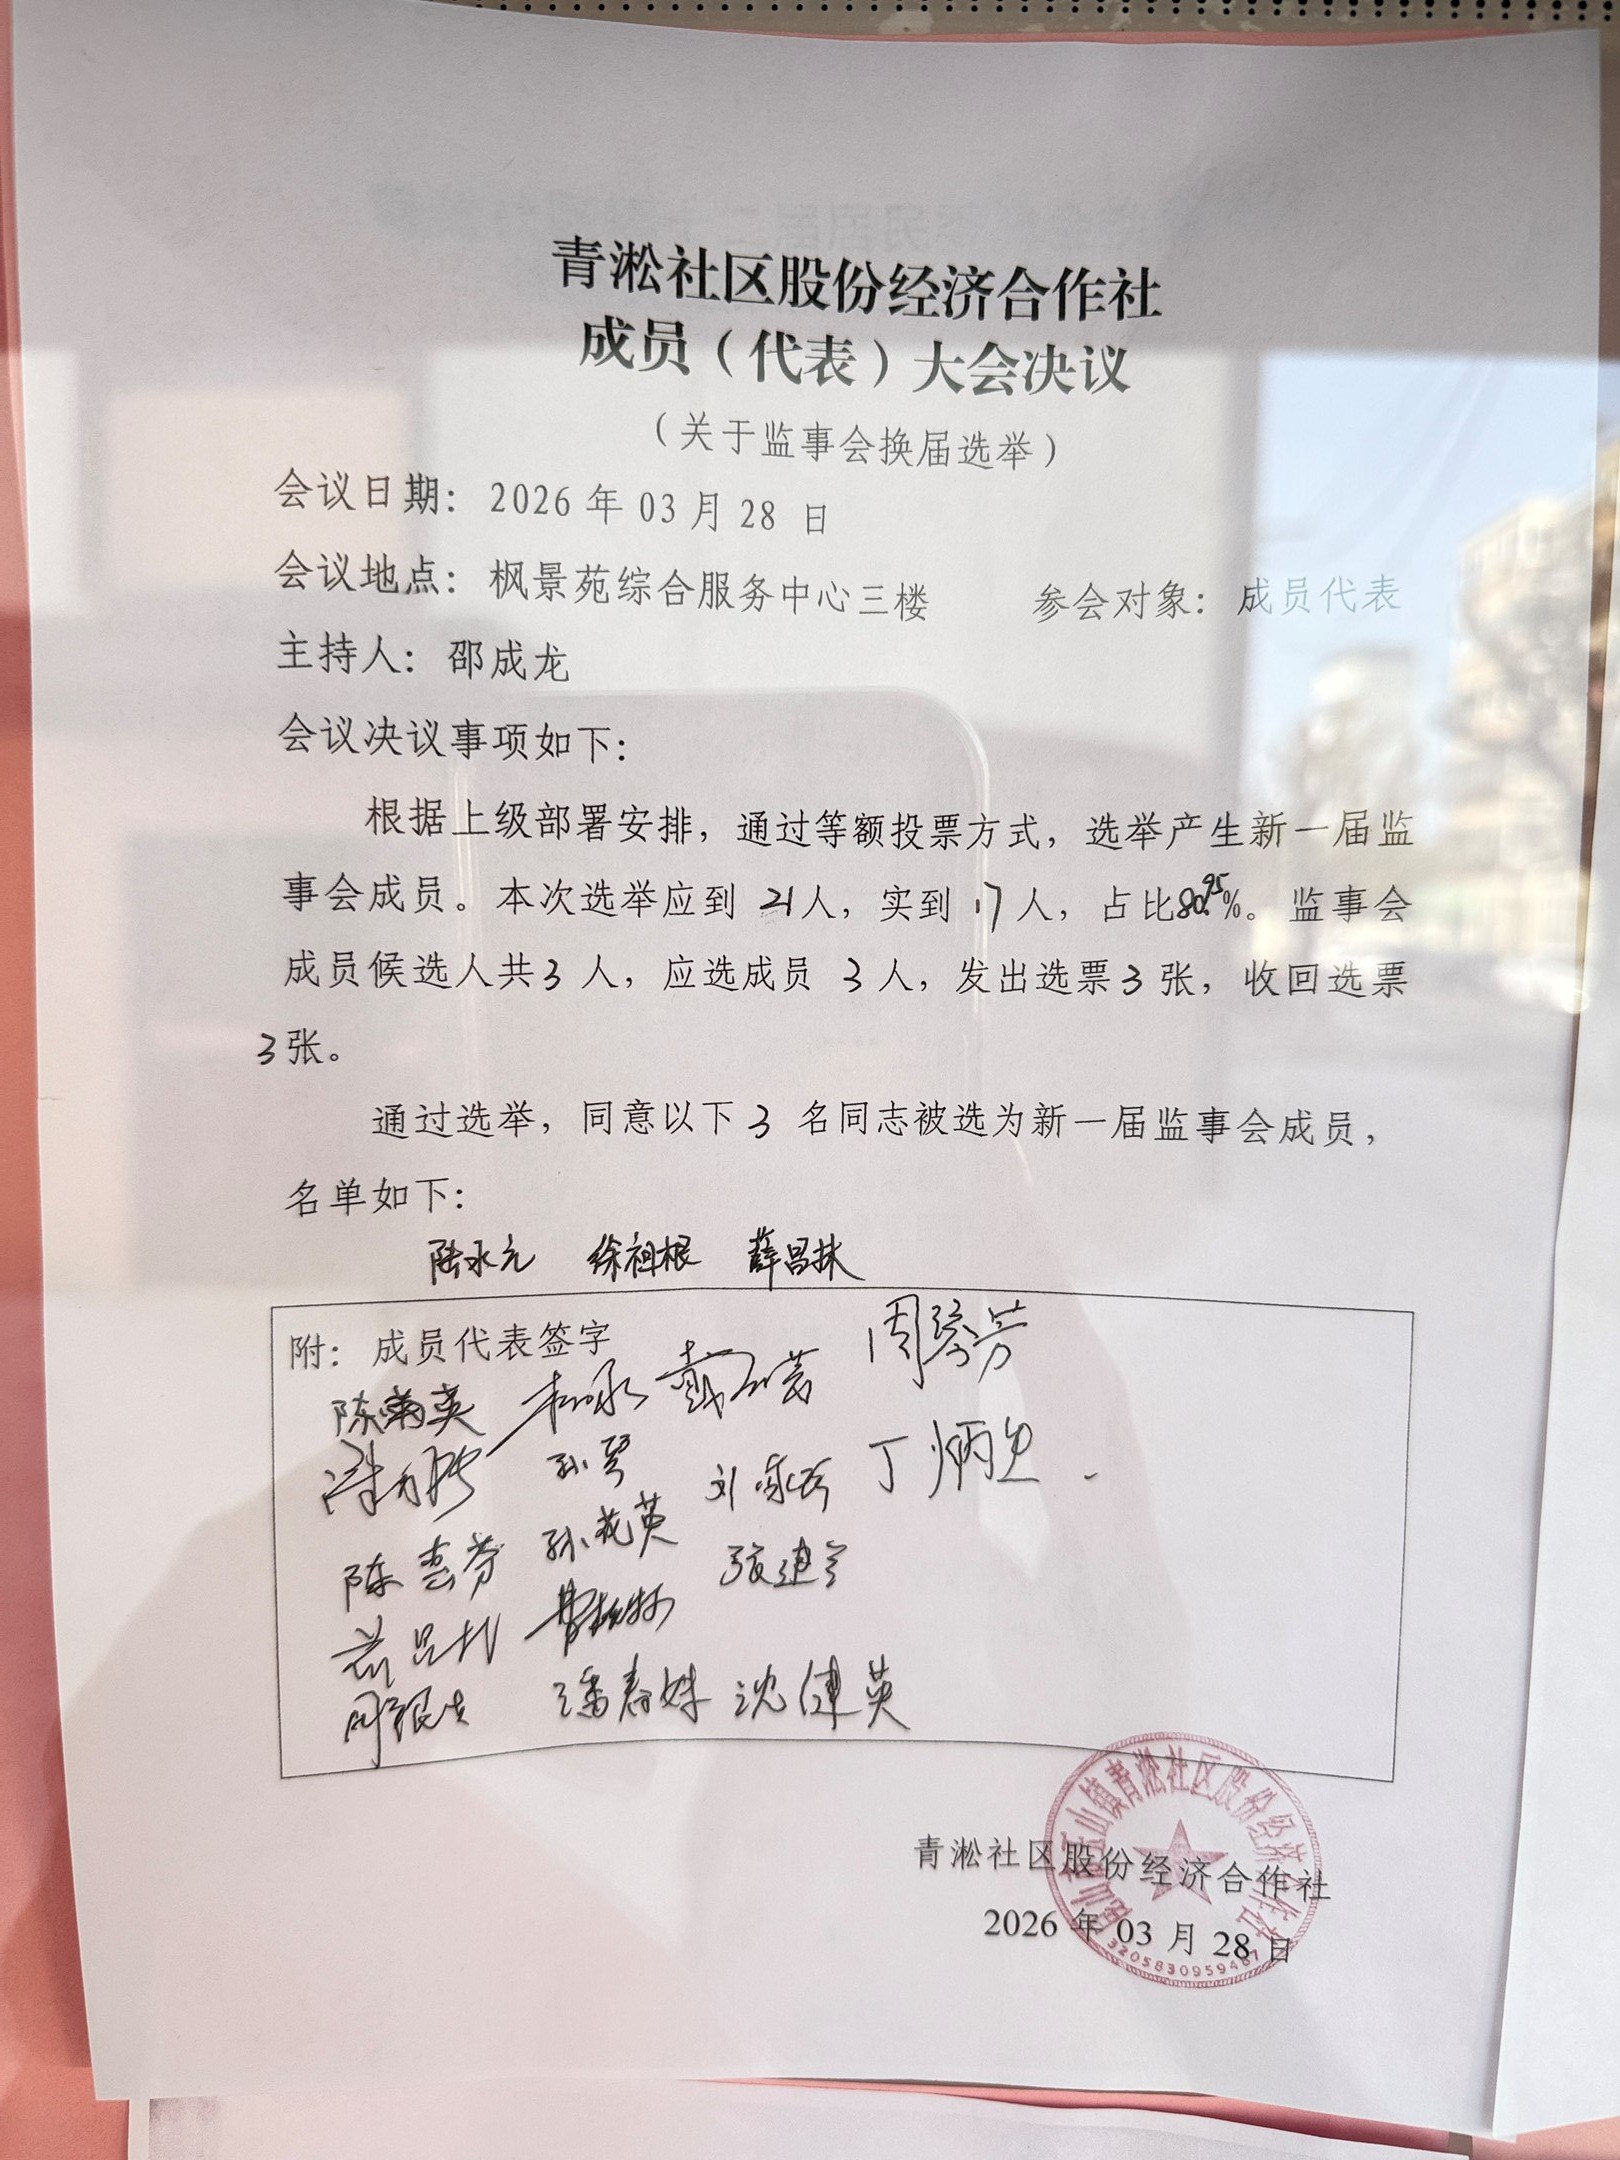 青淞社区股份经济合作社
成员（代表）大会决议
（关于监事会换届选举）
会议日期：2026 年 03 月 28 日
会议地点：枫景苑综合服务中心三楼 参会对象：成员代表
主持人：邵成龙
会议决议事项如下：
根据上级部署安排，通过等额投票方式，选举产生新一届监
事会成员。本次选举应到 21 人，实到 17 人，占比80.95%。监事会
成员候选人共 3 人，应选成员 3 人，发出选票 3 张，收回选票
3 张。
通过选举，同意以下 3 名同志被选为新一届监事会成员，
名单如下：
陆永元 徐祖根 薛昌林
附：成员代表签字
周琴芳
陈菊英
孙琴 丁炳
陈喜芬 孙花英
潘春妹 沈健英
青淞社区股份经济合作社
2026 年 03 月 28 日
昆山市玉山镇青淞社区股份经济合作社